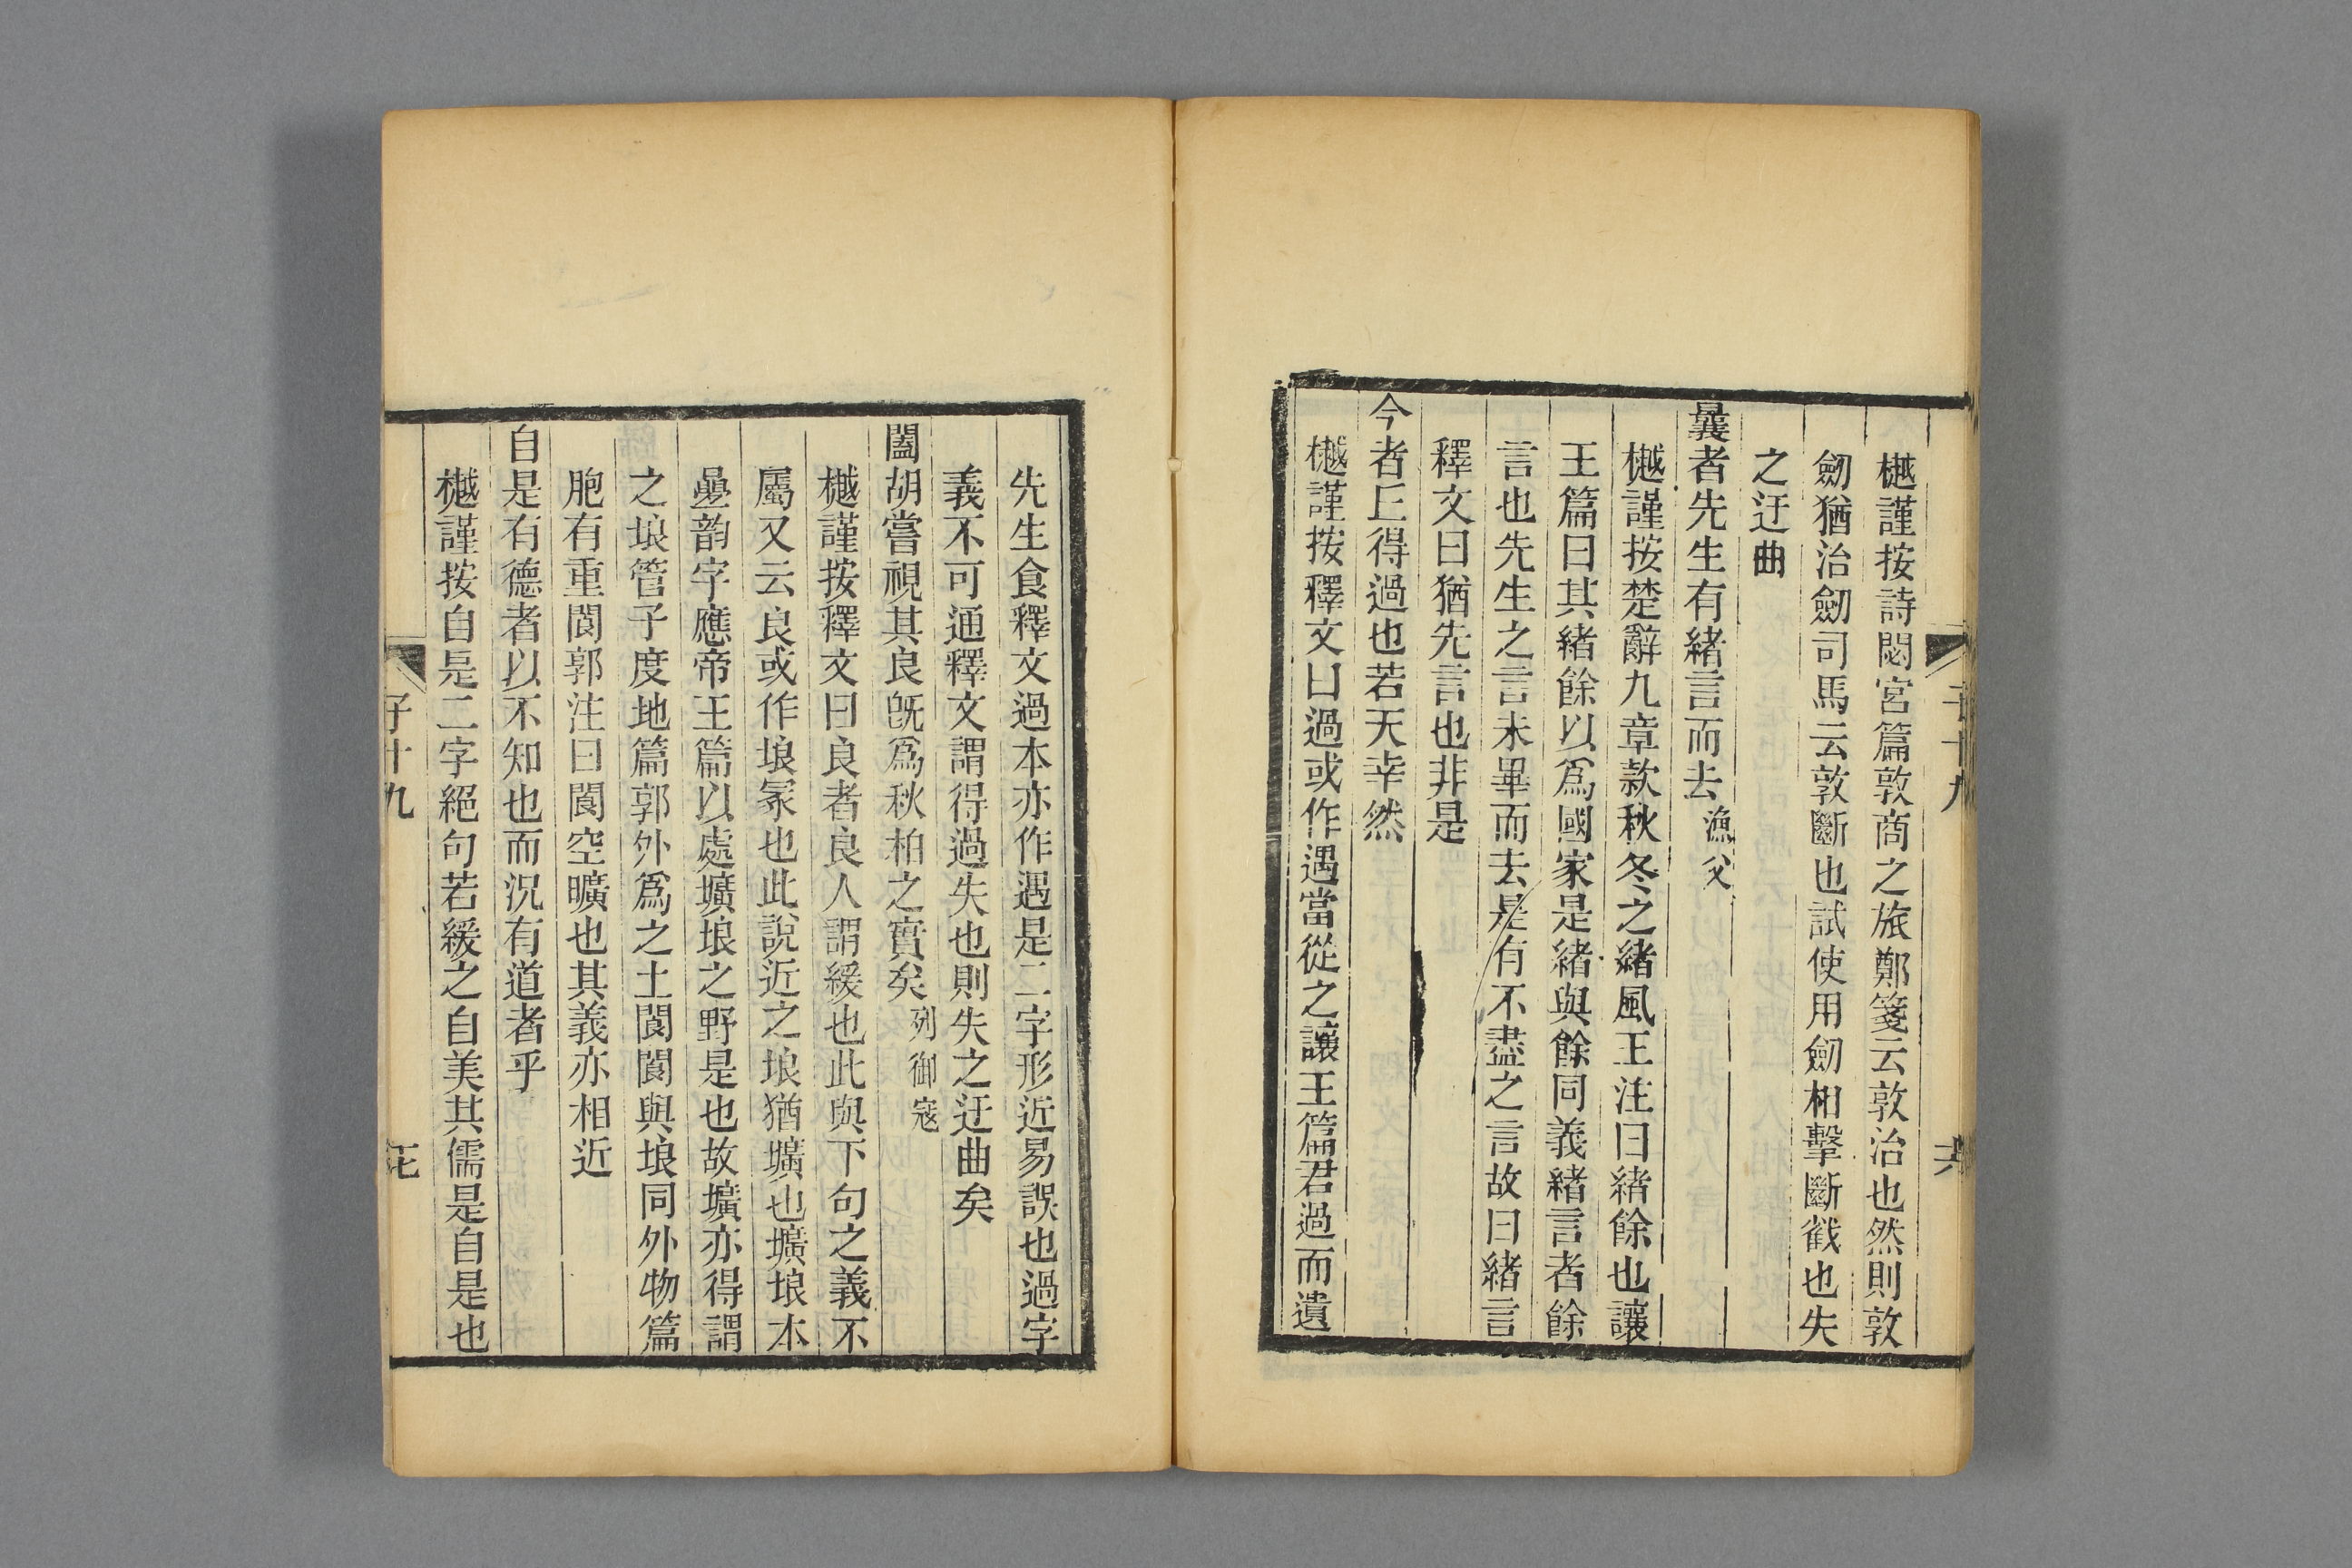 樾謹按詩閟宮篇敦商之旅鄭箋云敦治也然則敦
劒猶治劒司馬云敦斷也試使用劒相擊斷截也失
之迂曲
曩者先生有緒言而去漁父
樾謹按楚辭九章欸秋冬之緒風王注曰緒餘也讓
王篇曰其緒餘以爲國家是緒與餘同義緒言者餘
言也先生之言未畢而去是有不盡之言故曰緒言
釋文曰猶先言也非是
今者丘得過也若天幸然
樾謹按釋文曰過或作遇當從之讓王篇君過而遺
先生食釋文過本亦作遇是二字形近易誤也過字
義不可通釋文謂得過失也則失之迂曲矣
闔胡嘗視其良旣爲秋柏之實矣列御寇
樾謹按釋文曰良者良人謂緩也此與下句之義不
屬又云良或作埌冢也此說近之埌猶壙也壙埌本
疊韵字應帝王篇以處壙埌之野是也故壙亦得謂
之埌管子度地篇郭外爲之土閬閬與埌同外物篇
胞有重閬郭注曰閬空曠也其義亦相近
自是有德者以不知也而況有道者乎
樾謹按自是二字絕句若緩之自美其儒是自是也
子十九